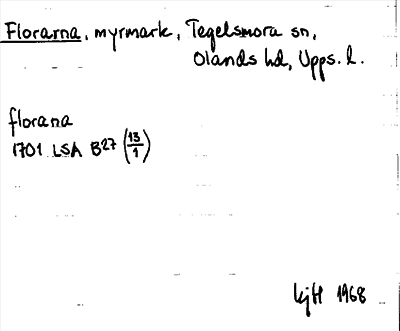 Florarna, myrmark, Tegelsmora sn,
Olands hd, Upps. l.
florana
1701 LSA B27 (13/1)
kjH 1968